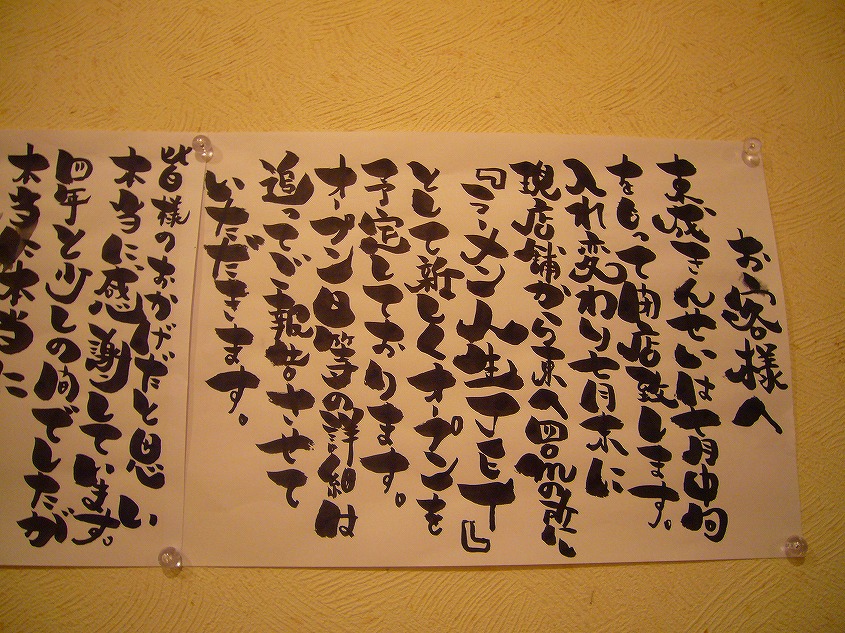 お客様へ
東成きんせいは七月中旬
をもって閉店致します。
入れ変わり七月末に
現店舗から東へ四〇〇mの所に
『ラーメン人生JET』
として新しくオープンを
予定しております。
オープン日等の詳細は
追ってご報告させて
いただきます。
皆様のおかげだと思い
本当に感謝しています。
四年と少しの間でしたが
本当に本当に